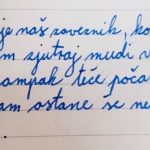 je naš zaveznik, ko
m zjutraj mudi v
ampak teče poča
am ostane še ne